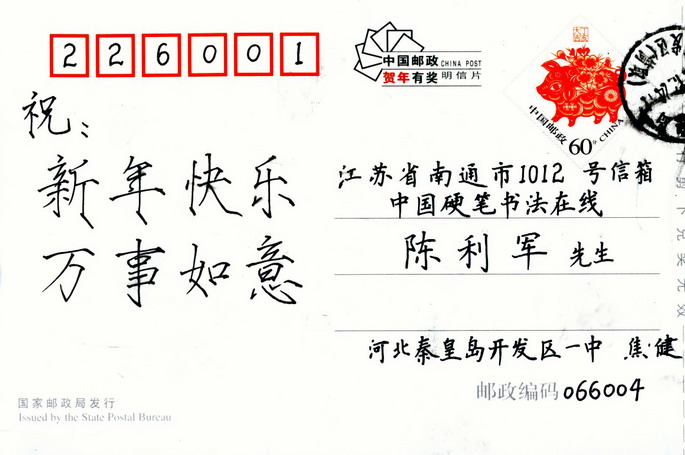 226001
中国邮政 CHINA POST
贺年有奖 明信片
中国邮政 CHINA
60
祝:
新年快乐
万事如意
江苏省南通市1012号信箱
中国硬笔书法在线
陈利军 先生
河北秦皇岛开发区一中 焦健
邮政编码 066004
国家邮政局发行
Issued by the State Postal Bureau